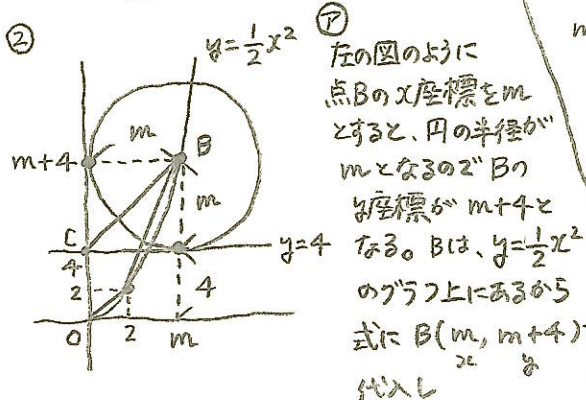 ②
y=1/2x²
m
m+4
B
m
C
y=4
4
2
4
O
2
m
㋐
左の図のように
点Bのx座標をm
とすると、円の半径が
mとなるのでBの
y座標がm+4と
なる。Bは、y=1/2x²
のグラフ上にあるから
式にB(m, m+4)
x y
代入し